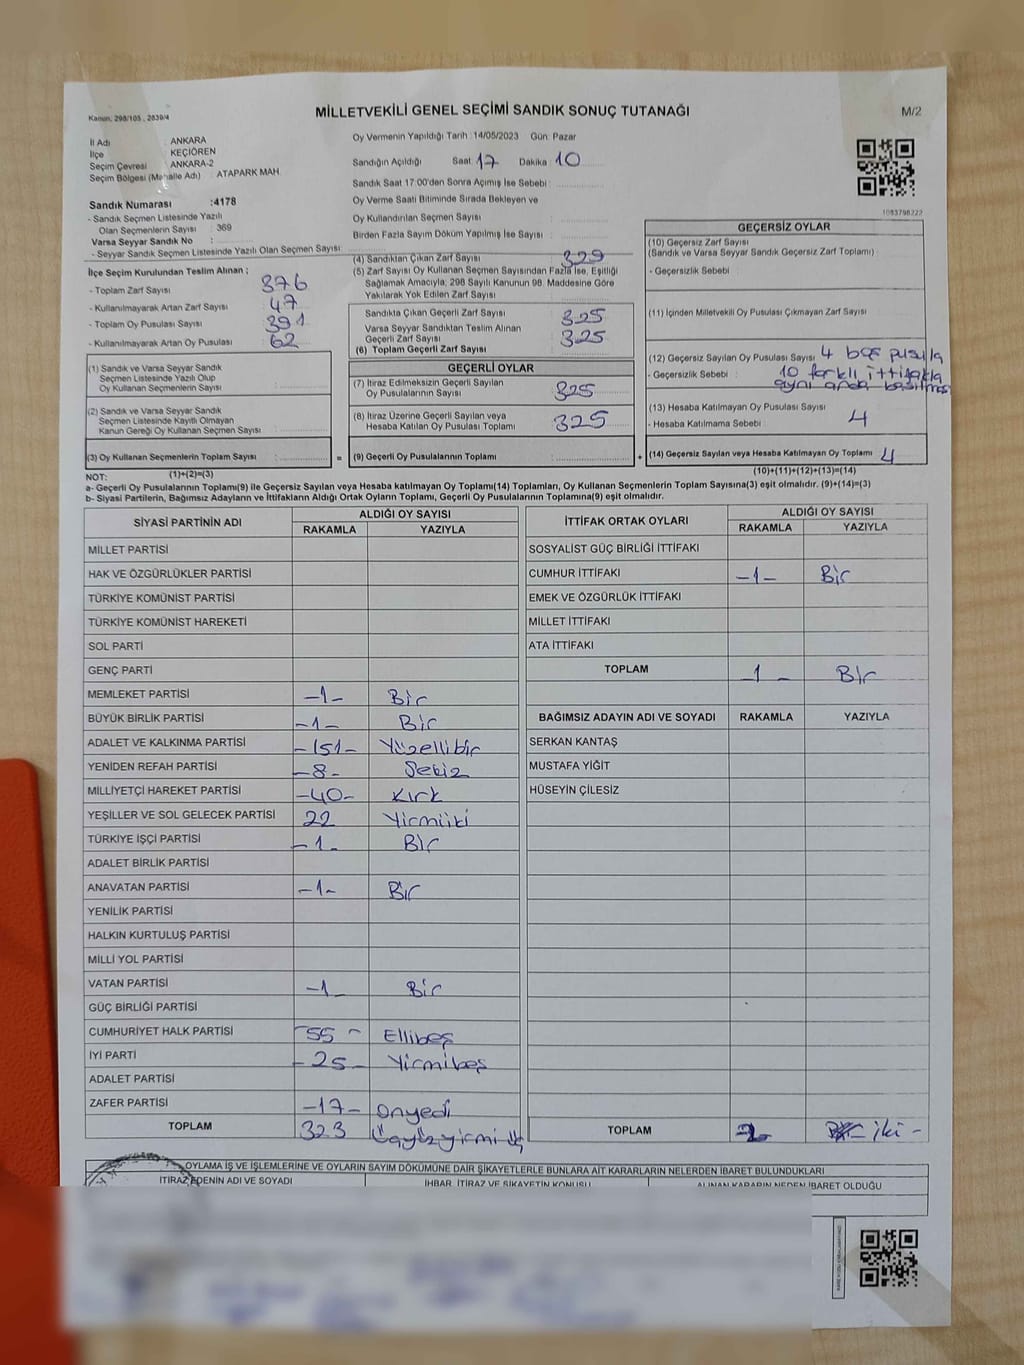 Kanun, 298/105 , 2839/4
MİLLETVEKİLİ GENEL SEÇİMİ SANDIK SONUÇ TUTANAĞI
M/2
İl Adı : ANKARA
İlçe : KEÇİÖREN
Seçim Çevresi : ANKARA-2
Seçim Bölgesi (Mahalle Adı) : ATAPARK MAH.
Sandık Numarası :4178
- Sandık Seçmen Listesinde Yazılı
Olan Seçmenlerin Sayısı : 369
Varsa Seyyar Sandık No :
- Seyyar Sandık Seçmen Listesinde Yazılı Olan Seçmen Sayısı:
Oy Vermenin Yapıldığı Tarih :14/05/2023 Gün: Pazar
Sandığın Açıldığı Saat: 17 Dakika 10
Sandık Saat 17:00'den Sonra Açımış İse Sebebi :
Oy Verme Saati Bitiminde Sırada Bekleyen ve
Oy Kullandırılan Seçmen Sayısı :
Birden Fazla Sayım Döküm Yapılmış İse Sayısı :
1083798222
İlçe Seçim Kurulundan Teslim Alınan ;
- Toplam Zarf Sayısı : 376
- Kullanılmayarak Artan Zarf Sayısı : 47
- Toplam Oy Pusulası Sayısı : 391
- Kullanılmayarak Artan Oy Pusulası : 62
(1) Sandık ve Varsa Seyyar Sandık
Seçmen Listesinde Yazılı Olup
Oy Kullanan Seçmenlerin Sayısı :
(2) Sandık ve Varsa Seyyar Sandık
Seçmen Listesinde Kayıtlı Olmayan
Kanun Gereği Oy Kullanan Seçmen Sayısı :
(3) Oy Kullanan Seçmenlerin Toplam Sayısı :
(1)+(2)=(3)
(4) Sandıktan Çıkan Zarf Sayısı : 329
(5) Zarf Sayısı Oy Kullanan Seçmen Sayısından Fazla İse, Eşitliği
Sağlamak Amacıyla; 298 Sayılı Kanunun 98. Maddesine Göre
Yakılarak Yok Edilen Zarf Sayısı :
Sandıkta Çıkan Geçerli Zarf Sayısı : 325
Varsa Seyyar Sandıktan Teslim Alınan
Geçerli Zarf Sayısı : 325
(6) Toplam Geçerli Zarf Sayısı :
GEÇERLİ OYLAR
(7) İtiraz Edilmeksizin Geçerli Sayılan
Oy Pusulalarının Sayısı : 325
(8) İtiraz Üzerine Geçerli Sayılan veya
Hesaba Katılan Oy Pusulası Toplamı : 325
= (9) Geçerli Oy Pusulalarının Toplamı :
GEÇERSİZ OYLAR
(10) Geçersiz Zarf Sayısı
(Sandık ve Varsa Seyyar Sandık Geçersiz Zarf Toplamı) :
- Geçersizlik Sebebi :
(11) İçinden Milletvekili Oy Pusulası Çıkmayan Zarf Sayısı :
(12) Geçersiz Sayılan Oy Pusulası Sayısı : 4 boş pusula
- Geçersizlik Sebebi : 10 farklı ittifakla
aynı anda basılmış
(13) Hesaba Katılmayan Oy Pusulası Sayısı :
- Hesaba Katılmama Sebebi : 4
+ (14) Geçersiz Sayılan veya Hesaba Katılmayan Oy Toplamı : 4
(10)+(11)+(12)+(13)=(14)
NOT:
a- Geçerli Oy Pusulalarının Toplamı(9) ile Geçersiz Sayılan veya Hesaba katılmayan Oy Toplamı(14) Toplamları, Oy Kullanan Seçmenlerin Toplam Sayısına(3) eşit olmalıdır. (9)+(14)=(3)
b- Siyasi Partilerin, Bağımsız Adayların ve İttifakların Aldığı Ortak Oyların Toplamı, Geçerli Oy Pusulalarının Toplamına(9) eşit olmalıdır.
SİYASİ PARTİNİN ADI ALDIĞI OY SAYISI
RAKAMLA YAZIYLA
MİLLET PARTİSİ
HAK VE ÖZGÜRLÜKLER PARTİSİ
TÜRKİYE KOMÜNİST PARTİSİ
TÜRKİYE KOMÜNİST HAREKETİ
SOL PARTİ
GENÇ PARTİ
MEMLEKET PARTİSİ -1- Bir
BÜYÜK BİRLİK PARTİSİ -1- Bir
ADALET VE KALKINMA PARTİSİ -151- Yüzellibir
YENİDEN REFAH PARTİSİ -8- Sekiz
MİLLİYETÇİ HAREKET PARTİSİ -40- Kırk
YEŞİLLER VE SOL GELECEK PARTİSİ 22 Yirmiiki
TÜRKİYE İŞÇİ PARTİSİ -1- Bir
ADALET BİRLİK PARTİSİ
ANAVATAN PARTİSİ -1- Bir
YENİLİK PARTİSİ
HALKIN KURTULUŞ PARTİSİ
MİLLİ YOL PARTİSİ
VATAN PARTİSİ -1- Bir
GÜÇ BİRLİĞİ PARTİSİ
CUMHURİYET HALK PARTİSİ -55- Ellibeş
İYİ PARTİ -25- Yirmibeş
ADALET PARTİSİ
ZAFER PARTİSİ -17- Onyedi
TOPLAM 323 Üçyüzyirmi üç
İTTİFAK ORTAK OYLARI ALDIĞI OY SAYISI
RAKAMLA YAZIYLA
SOSYALİST GÜÇ BİRLİĞİ İTTİFAKI
CUMHUR İTTİFAKI -1- Bir
EMEK VE ÖZGÜRLÜK İTTİFAKI
MİLLET İTTİFAKI
ATA İTTİFAKI
TOPLAM -1- Bir
BAĞIMSIZ ADAYIN ADI VE SOYADI RAKAMLA YAZIYLA
SERKAN KANTAŞ
MUSTAFA YİĞİT
HÜSEYİN ÇİLESİZ
TOPLAM 2 iki -
OYLAMA İŞ VE İŞLEMLERİNE VE OYLARIN SAYIM DÖKÜMÜNE DAİR ŞİKAYETLERLE BUNLARA AİT KARARLARIN NELERDEN İBARET BULUNDUKLARI
İTİRAZ EDENİN ADI VE SOYADI İHBAR, İTİRAZ VE ŞİKAYETİN KONUSU ALINAN KARARIN NEDEN İBARET OLDUĞU